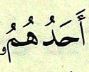 أَحَدُهُمُۥ